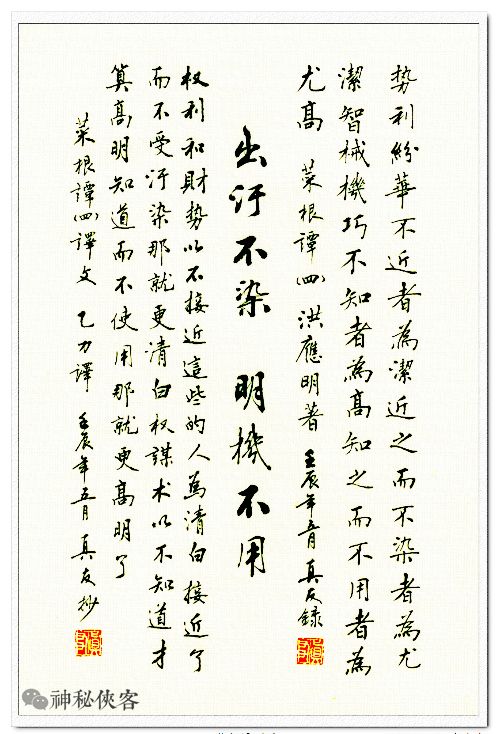 势利紛華不近者為潔近之而不染者為尤
潔智械機巧不知者為高知之而不用者為
尤高 菜根譚(四) 洪應明著 壬辰年五月真友錄
出汙不染 明機不用
权利和財势以不接近這些的人為清白接近了
而不受汙染那就更清白权謀术以不知道才
算高明知道而不使用那就更高明了
菜根譚(四)譯文 乙力譯 壬辰年五月真友抄
神秘侠客